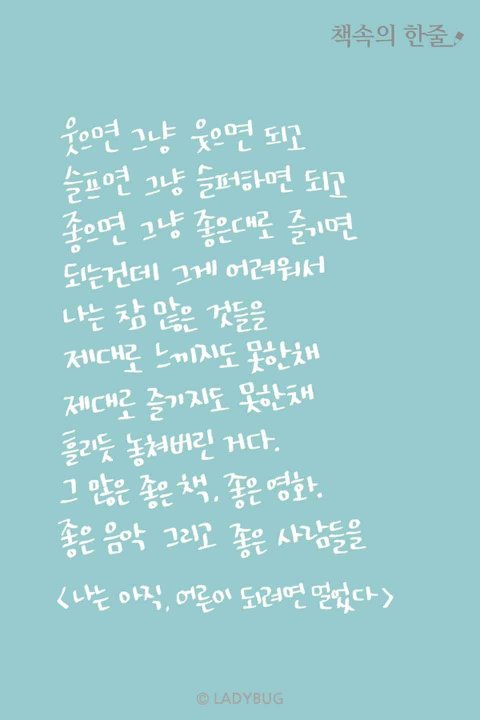 책속의 한줄
웃으면 그냥 웃으면 되고
슬프면 그냥 슬퍼하면 되고
좋으면 그냥 좋은대로 즐기면
되는건데 그게 어려워서
나는 참 많은 것들을
제대로 느끼지도 못한채
제대로 즐기지도 못한채
흘리듯 놓쳐버린 거다.
그 많은 좋은 책, 좋은 영화.
좋은 음악 그리고 좋은 사람들을
<나는 아직, 어른이 되려면 멀었다>
© LADYBUG